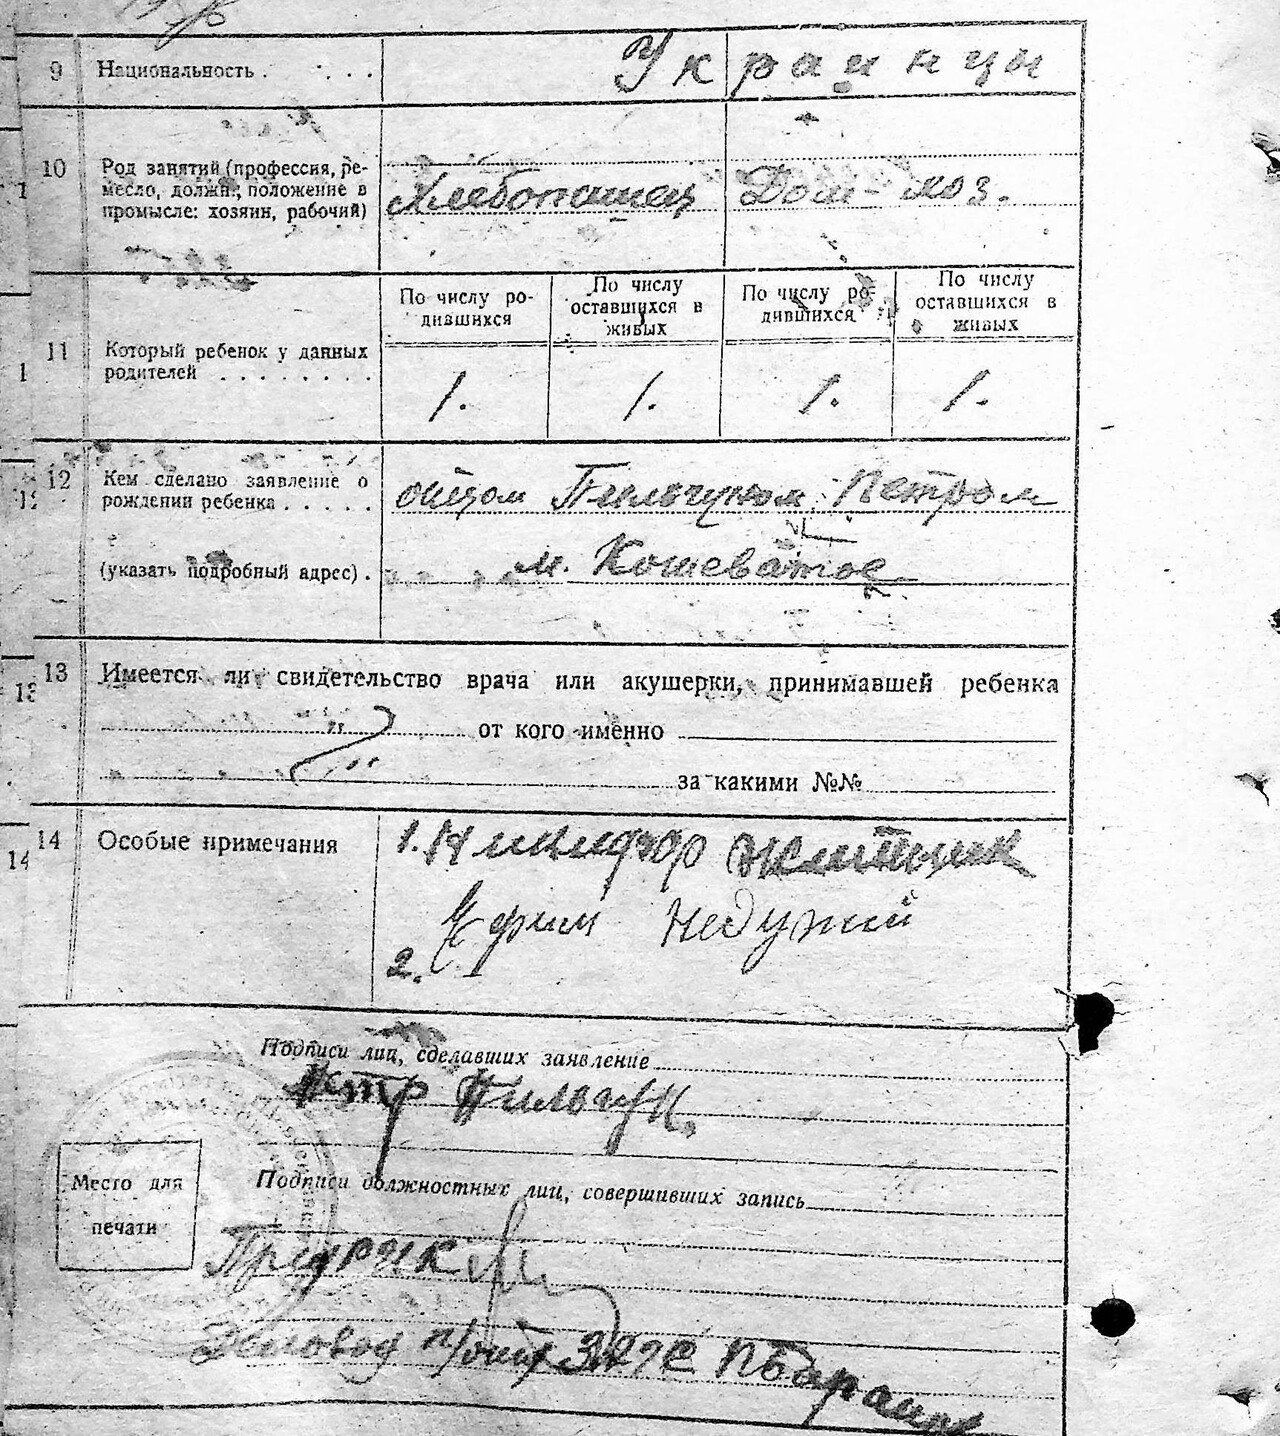 9 Национальность . . . . Украинцы
10 Род занятий (профессия, ре-
месло, должн., положение в
промысле: хозяин, рабочий)
Хлебопашец Дом-хоз.
По числу ро-
дившихся
По числу
оставшихся в
живых
По числу ро-
дившихся
По числу
оставшихся в
живых
11 Который ребенок у данных
родителей . . . . . . . .
1. 1. 1. 1.
12 Кем сделано заявление о
рождении ребенка . . . . .
отцом Пильчуком Петром
(указать подробный адрес) .
м. Кошеватое
13 Имеется ли свидетельство врача или акушерки, принимавшей ребенка
от кого именно
за какими №№
14 Особые примечания
1. Никифор
Ефим Недужий
2.
Подписи лиц, сделавших заявление
Петр Пильчук.
Место для
печати
Подписи должностных лиц, совершивших запись
Деловод ЗАГС